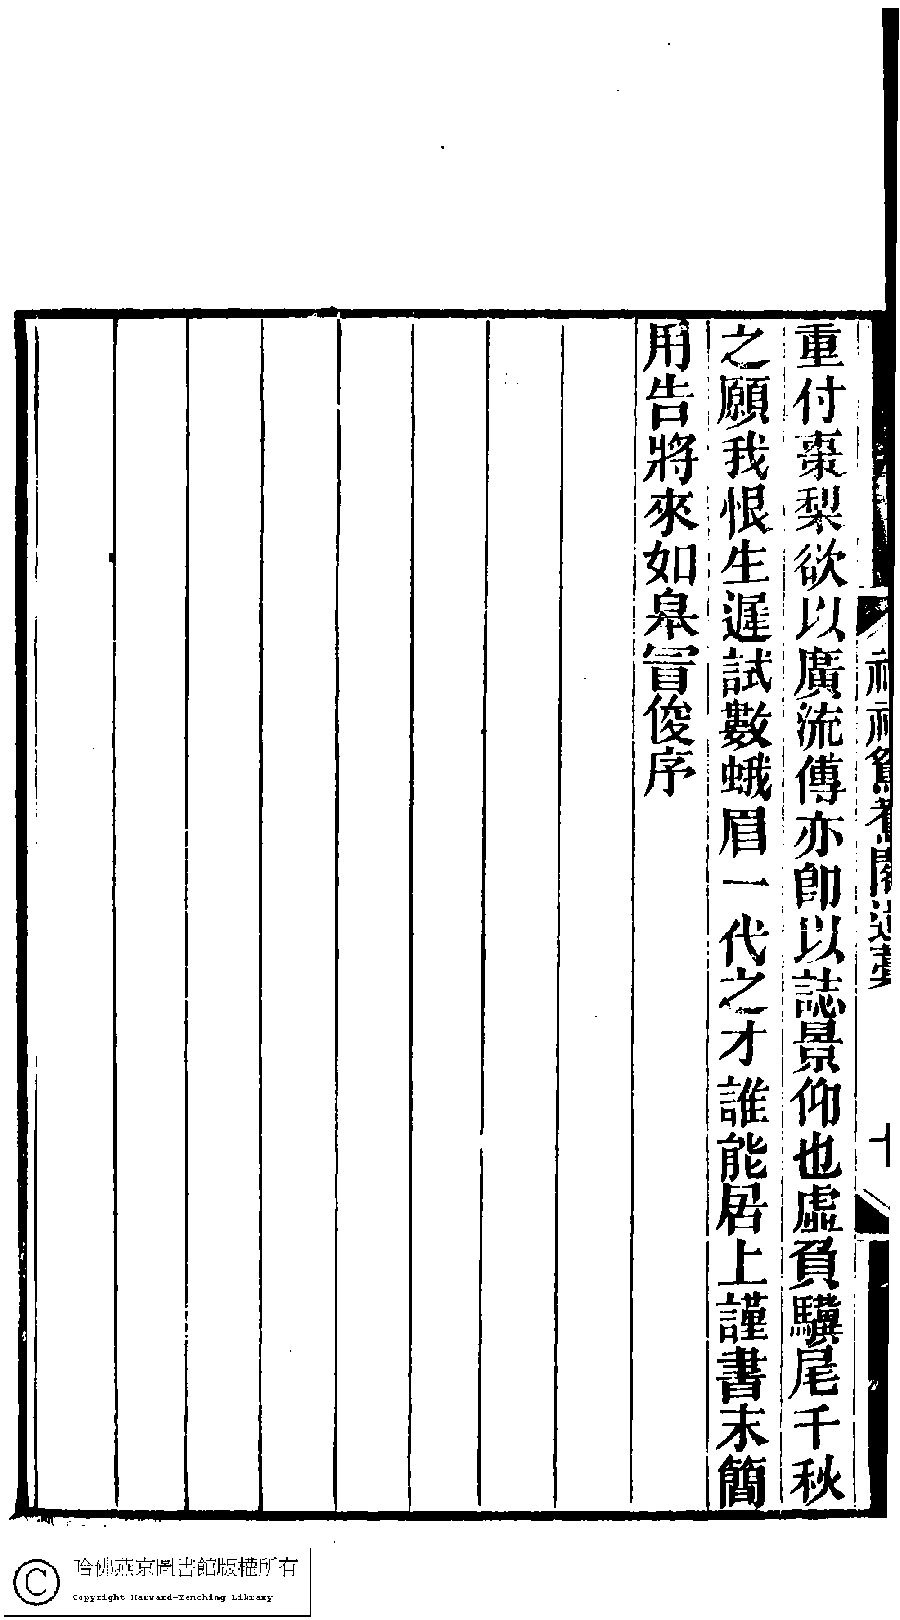 重付棗梨欲以廣流傳亦卽以誌景仰也虛負驥尾千秋
之願我恨生遲試數蛾眉一代之才誰能居上謹書末簡
用告將來如皋冒俊序
哈佛燕京圖書館版權所有
Copyright Harvard-Yenching Library